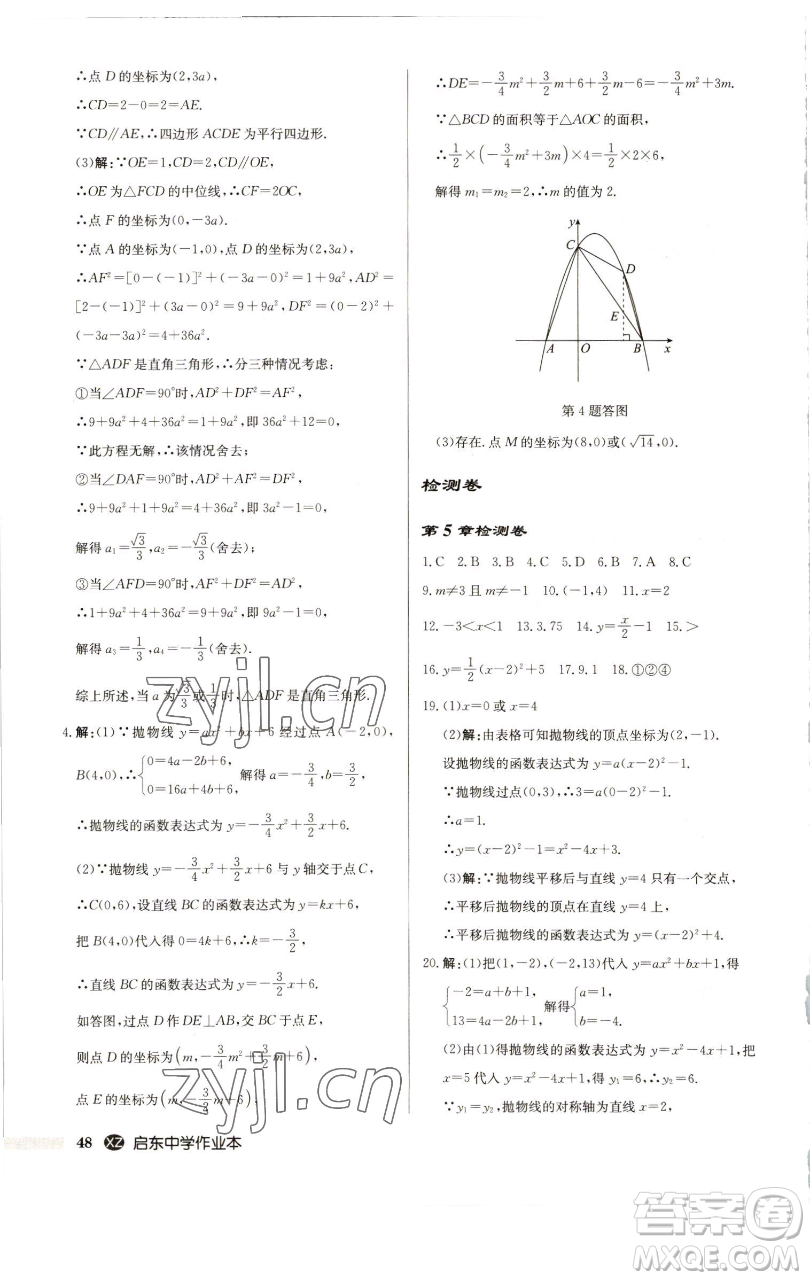 ∴点 D 的坐标为(2,3a),
∴CD=2-0=2=AE.
∵CD∥AE,∴四边形 ACDE 为平行四边形.
(3)解:∵OE=1,CD=2,CD∥OE,
∴OE 为△FCD 的中位线,∴CF=2OC,
∴点 F 的坐标为(0,-3a).
∵点 A 的坐标为(-1,0),点 D 的坐标为(2,3a),
∴AF²=[0-(-1)]²+(-3a-0)²=1+9a²,AD²=
[2-(-1)]²+(3a-0)²=9+9a²,DF²=(0-2)²+
(-3a-3a)²=4+36a².
∵△ADF 是直角三角形,∴分三种情况考虑:
①当∠ADF=90°时,AD²+DF²=AF²,
∴9+9a²+4+36a²=1+9a²,即 36a²+12=0.
∵此方程无解,∴该情况舍去;
②当∠DAF=90°时,AD²+AF²=DF²,
∴9+9a²+1+9a²=4+36a²,即 18a²=6,
解得 a₁=√3/3,a₂=-√3/3(舍去);
③当∠AFD=90°时,AF²+DF²=AD²,
∴1+9a²+4+36a²=9+9a²,即 36a²=4,
解得 a₃=1/3,a₄=-1/3(舍去).
综上所述,当 a 为√3/3或1/3时,△ADF 是直角三角形.
4.解:(1)∵抛物线 y=ax²+bx+6 经过点 A(-2,0),
B(4,0),∴{0=4a-2b+6, 0=16a+4b+6, 解得 a=-3/4,b=3/2,
∴抛物线的函数表达式为 y=-3/4x²+3/2x+6.
(2)∵抛物线 y=-3/4x²+3/2x+6 与 y 轴交于点 C,
∴C(0,6),设直线 BC 的函数表达式为 y=kx+6,
把 B(4,0)代入得 0=4k+6,∴k=-3/2,
∴直线 BC 的函数表达式为 y=-3/2x+6.
如答图,过点 D 作 DE⊥AB,交 BC 于点 E,
则点 D 的坐标为(m,-3/4m²+3/2m+6),
点 E 的坐标为(m,-3/2m+6),
48 XZ 启东中学作业本
∴DE=-3/4m²+3/2m+6+3/2m-6=-3/4m²+3m.
∵△BCD 的面积等于△AOC 的面积,
∴1/2×(-3/4m²+3m)×4=1/2×2×6,
解得 m₁=m₂=2,∴m 的值为 2.
y
C
D
E
A O B x
第 4 题答图
(3)存在.点 M 的坐标为(8,0)或(√14,0).
检测卷
第 5 章检测卷
1.C 2.B 3.B 4.C 5.B 6.B 7.A 8.C
9.m≠3 且 m≠-1 10.(-1,4) 11.x=2
12.-3<x<1 13.3.75 14.y=x/2-1 15.>
16.y=1/2(x-2)²+5 17.9.1 18.①②④
19.(1)x=0 或 x=4
(2)解:由表格可知抛物线的顶点坐标为(2,-1).
设抛物线的函数表达式为 y=a(x-2)²-1,
∵抛物线过点(0,3),∴3=a(0-2)²-1,
∴a=1.
∴y=(x-2)²-1=x²-4x+3.
(3)解:∵抛物线平移后与直线 y=4 只有一个交点,
∴平移后抛物线的顶点在直线 y=4 上,
∴平移后抛物线的函数表达式为 y=(x-2)²+4.
20.解:(1)把(1,-2),(-2,13)代入 y=ax²+bx+1,得
{-2=a+b+1, 13=4a-2b+1, 解得{a=1, b=-4.
(2)由(1)得抛物线的函数表达式为 y=x²-4x+1,把
x=5 代入 y=x²-4x+1,得 y₁=6,∴y₂=6.
∵y₁=y₂,抛物线的对称轴为直线 x=2,
zyjl.cn
zyjl.cn
答案卷
MXQE.COM